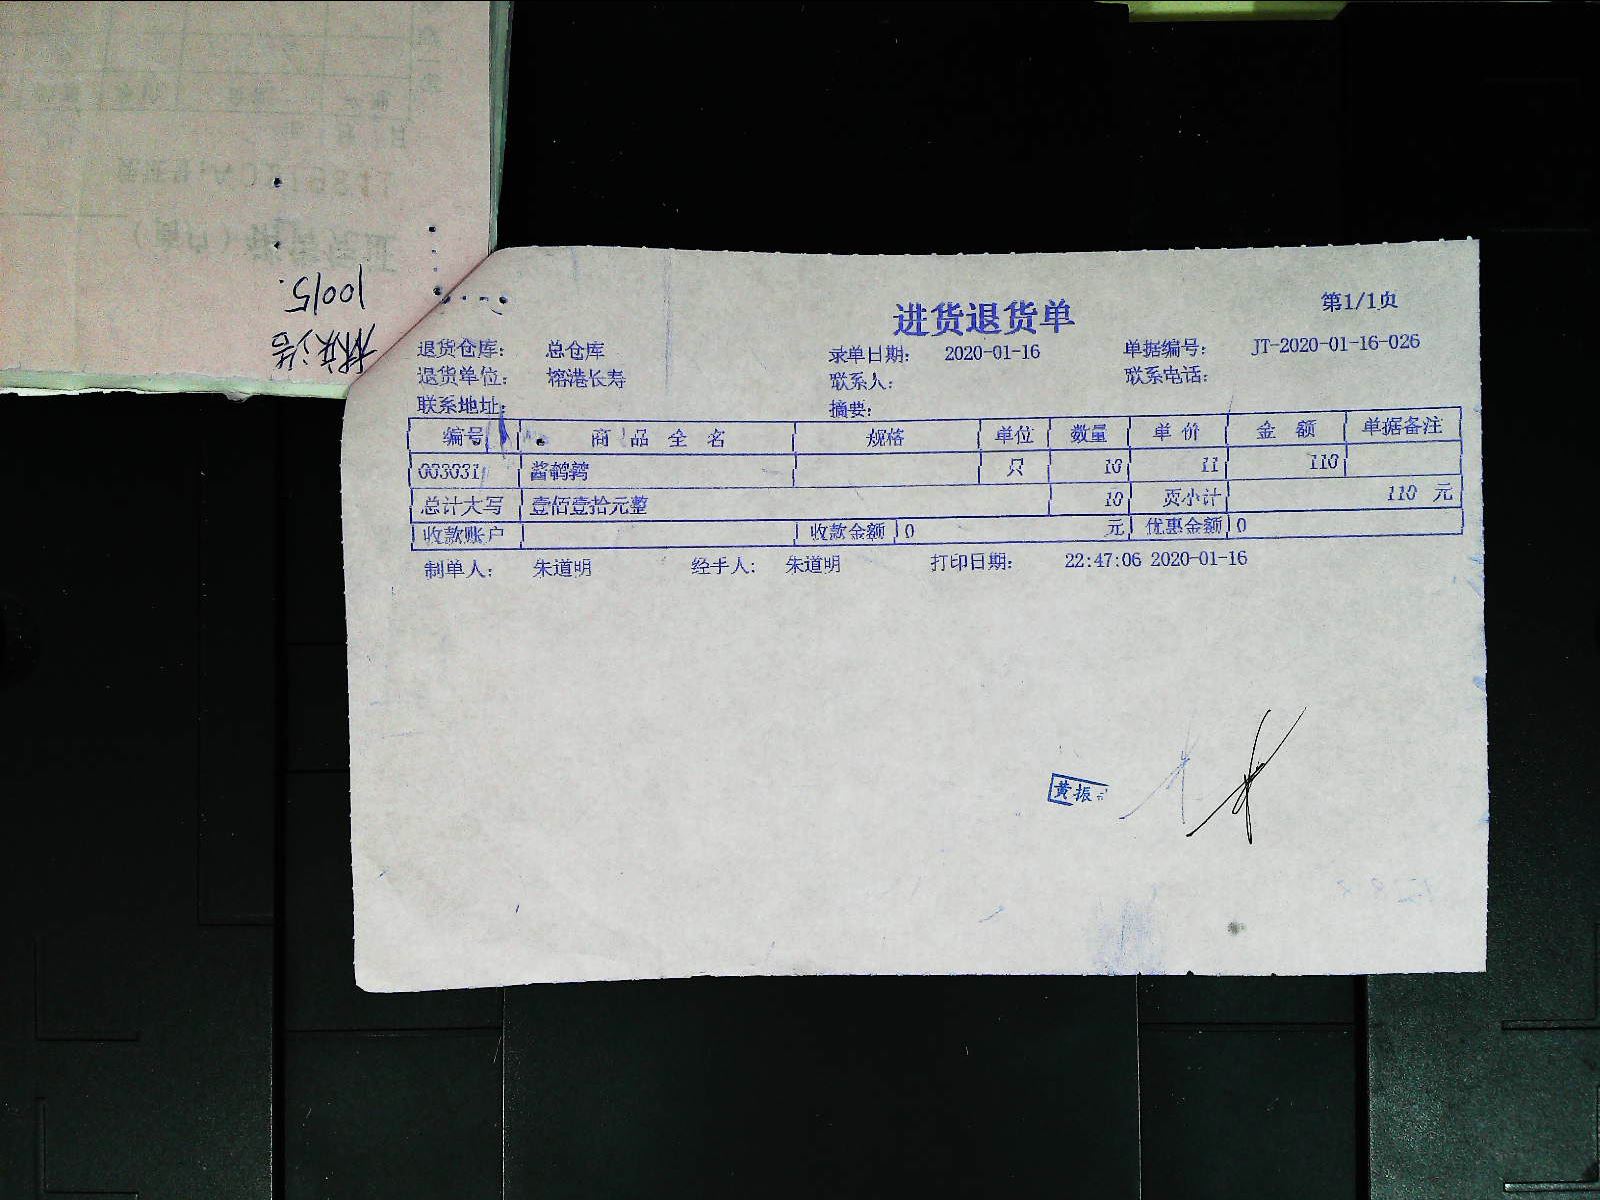 进货退货单
第1/1页
退货仓库: 总仓库 录单日期: 2020-01-16 单据编号: JT-2020-01-16-026
退货单位: 榕港长寿 联系人: 联系电话:
联系地址: 摘要:
编号 商品全名 规格 单位 数量 单价 金额 单据备注
003031 酱鹌鹑 只 10 11 110
总计大写 壹佰壹拾元整 10 页小计 110 元
收款账户 收款金额 0 元 优惠金额 0
制单人: 朱道明 经手人: 朱道明 打印日期: 22:47:06 2020-01-16
黄振
10015.